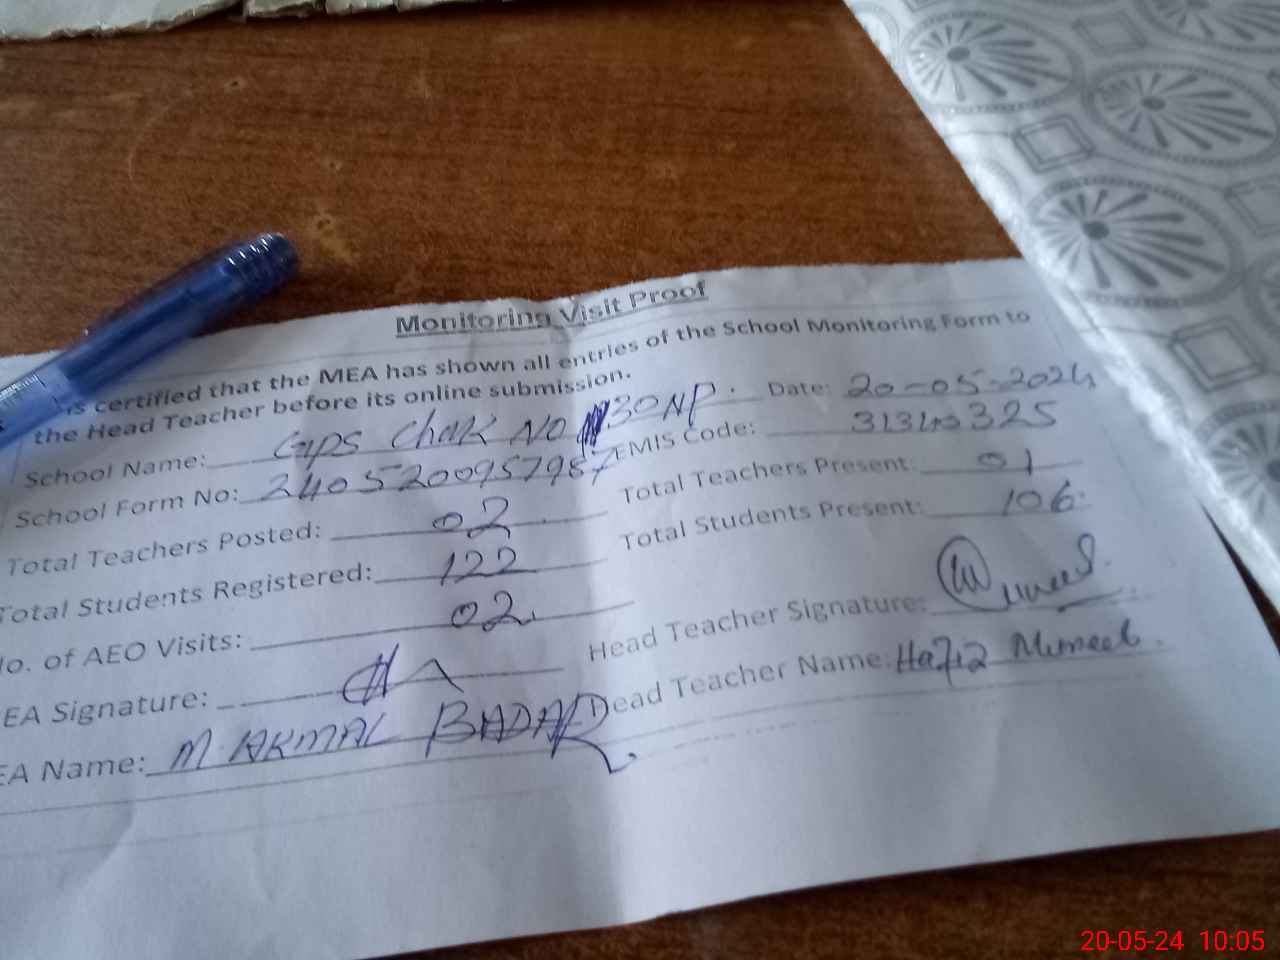 Monitoring Visit Proof
is certified that the MEA has shown all entries of the School Monitoring Form to
the Head Teacher before its online submission.
School Name: GPS Chak NO 30NP. Date: 20-05-2024
School Form No: 2405200957987 EMIS Code: 31340325
Total Teachers Posted: 02 Total Teachers Present: 01
Total Students Registered: 122 Total Students Present: 106
No. of AEO Visits: 02
EA Signature: Head Teacher Signature:
EA Name: M AKMAL BADAR Head Teacher Name: Hafiz
20-05-24 10:05